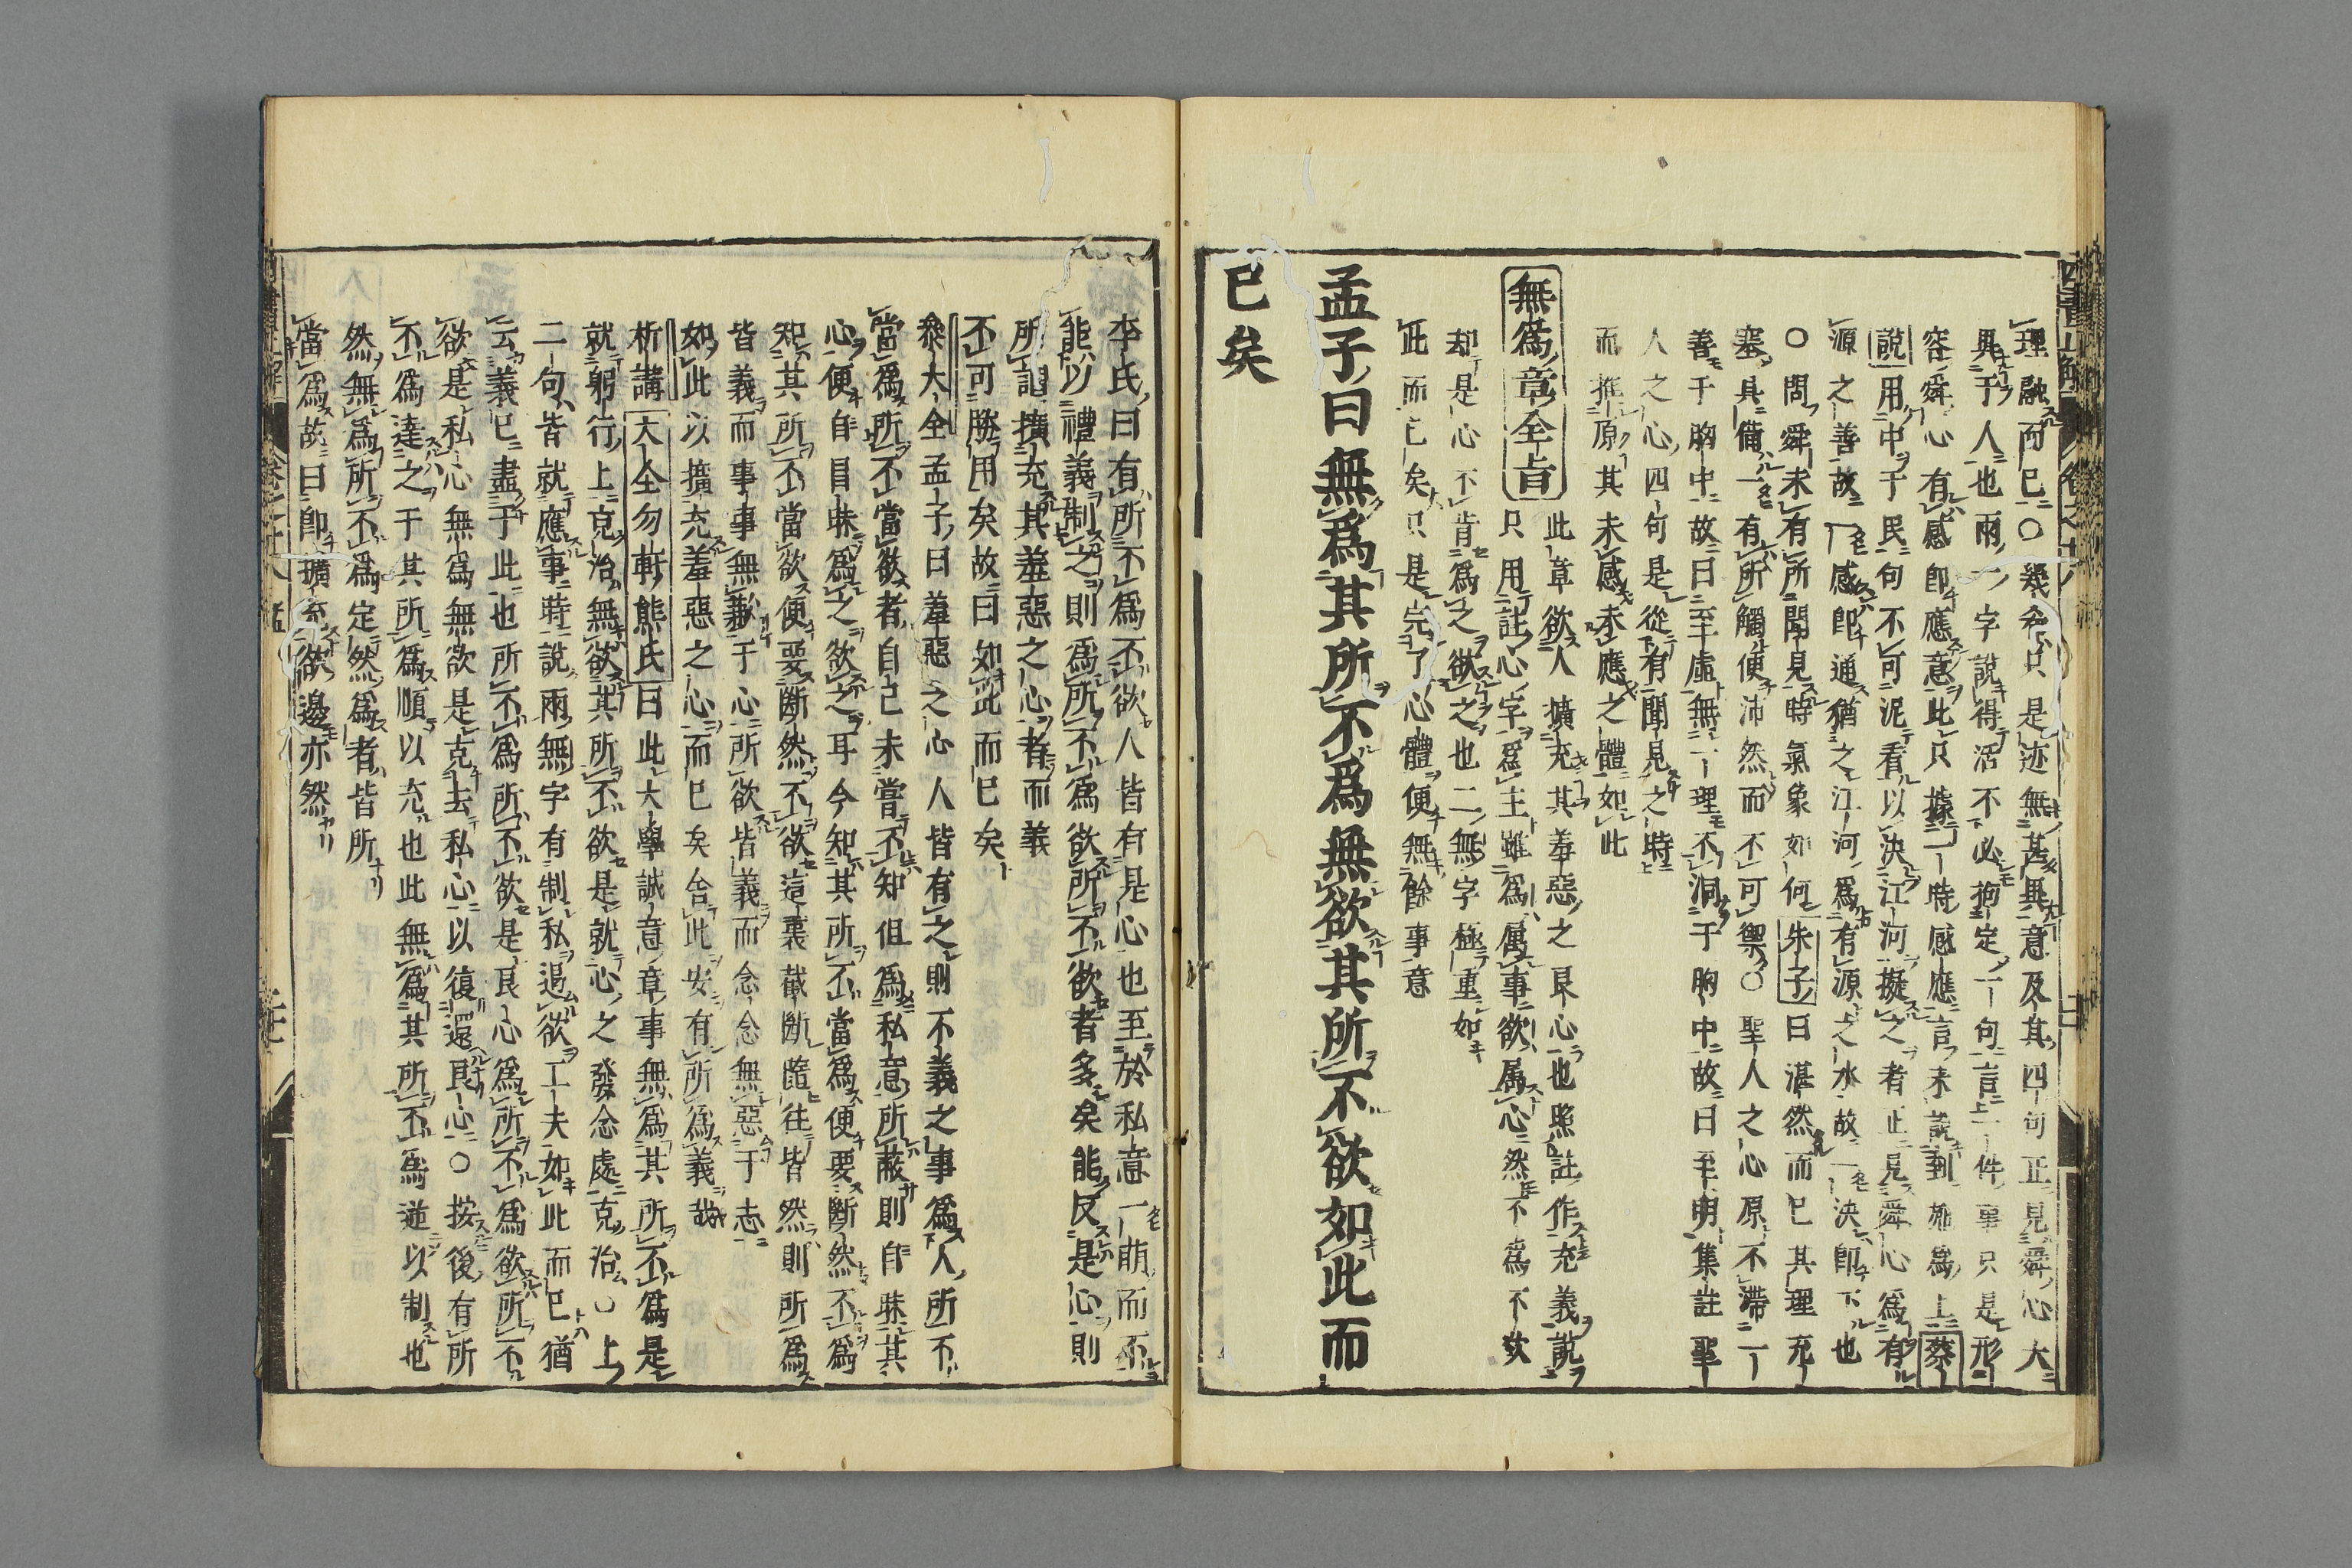 理融而已○幾希只是迹無甚異意及其四句正見舜心大
異于人也兩一字說得活不必拘定一句言一件事只是形
容舜心有感即應意此只據一時感應言未說到施爲上蔡
說用中于民句不可泥看以決江河擬之者正見舜心爲有
源之善故一感即通猶之江河爲有源之水故一決即下也
○問舜未有所聞見時氣象如何朱子曰湛然而已其理充
塞具備一有所觸便沛然而不可禦○聖人之心原不滯一
善于胸中故曰至虛無一理不洞于胸中故曰至明集註聖
人之心四句是從有聞見之時
而推原其未感未應之體如此
無爲章全旨
此章欲人擴充其羞惡之良心也照註作充義說
只用註心字爲主雖爲屬事欲屬心然不爲不欲
却是心不肯爲之欲之也二無字極重如
此而已矣只是完了心體便無餘事意
孟子曰無爲其所不爲無欲其所不欲如此而
已矣
李氏曰有所不爲不欲人皆有是心也至於私意一萌而不
能以禮義制之則爲所不爲欲所不欲者多矣能反是心則
所謂擴充其羞惡之心者而義
不可勝用矣故曰如此而已矣
叅大全孟子曰羞惡之心人皆有之則不義之事爲人所不
當爲所不當欲者自己未嘗不知但爲私意所蔽則自昧其
心便自目昧爲之欲之耳今知其所不當爲便要斷然不爲
知其所不當欲便要斷然不欲這裏截斷隨往皆然則所爲
皆義而事事無歉于心所欲皆義而念念無惡于志
如此以擴充羞惡之心而已矣舍此安有所爲義哉
析講大全勿軒熊氏曰此大學誠意章事無爲其所不爲是
就躬行上克治無欲其所不欲是就心之發念處克治○上
二句皆就應事時說兩無字有制私遏欲工夫如此而已猶
云義已盡于此也所不爲所不欲是良心爲所不爲欲所不
欲是私心無爲無欲是克去私心以復還良心○按後有所
不爲達之于其所爲順以充也此無爲其所不爲逆以制也
然無爲所不爲定然爲者皆所
當爲故曰即擴充欲邊亦然